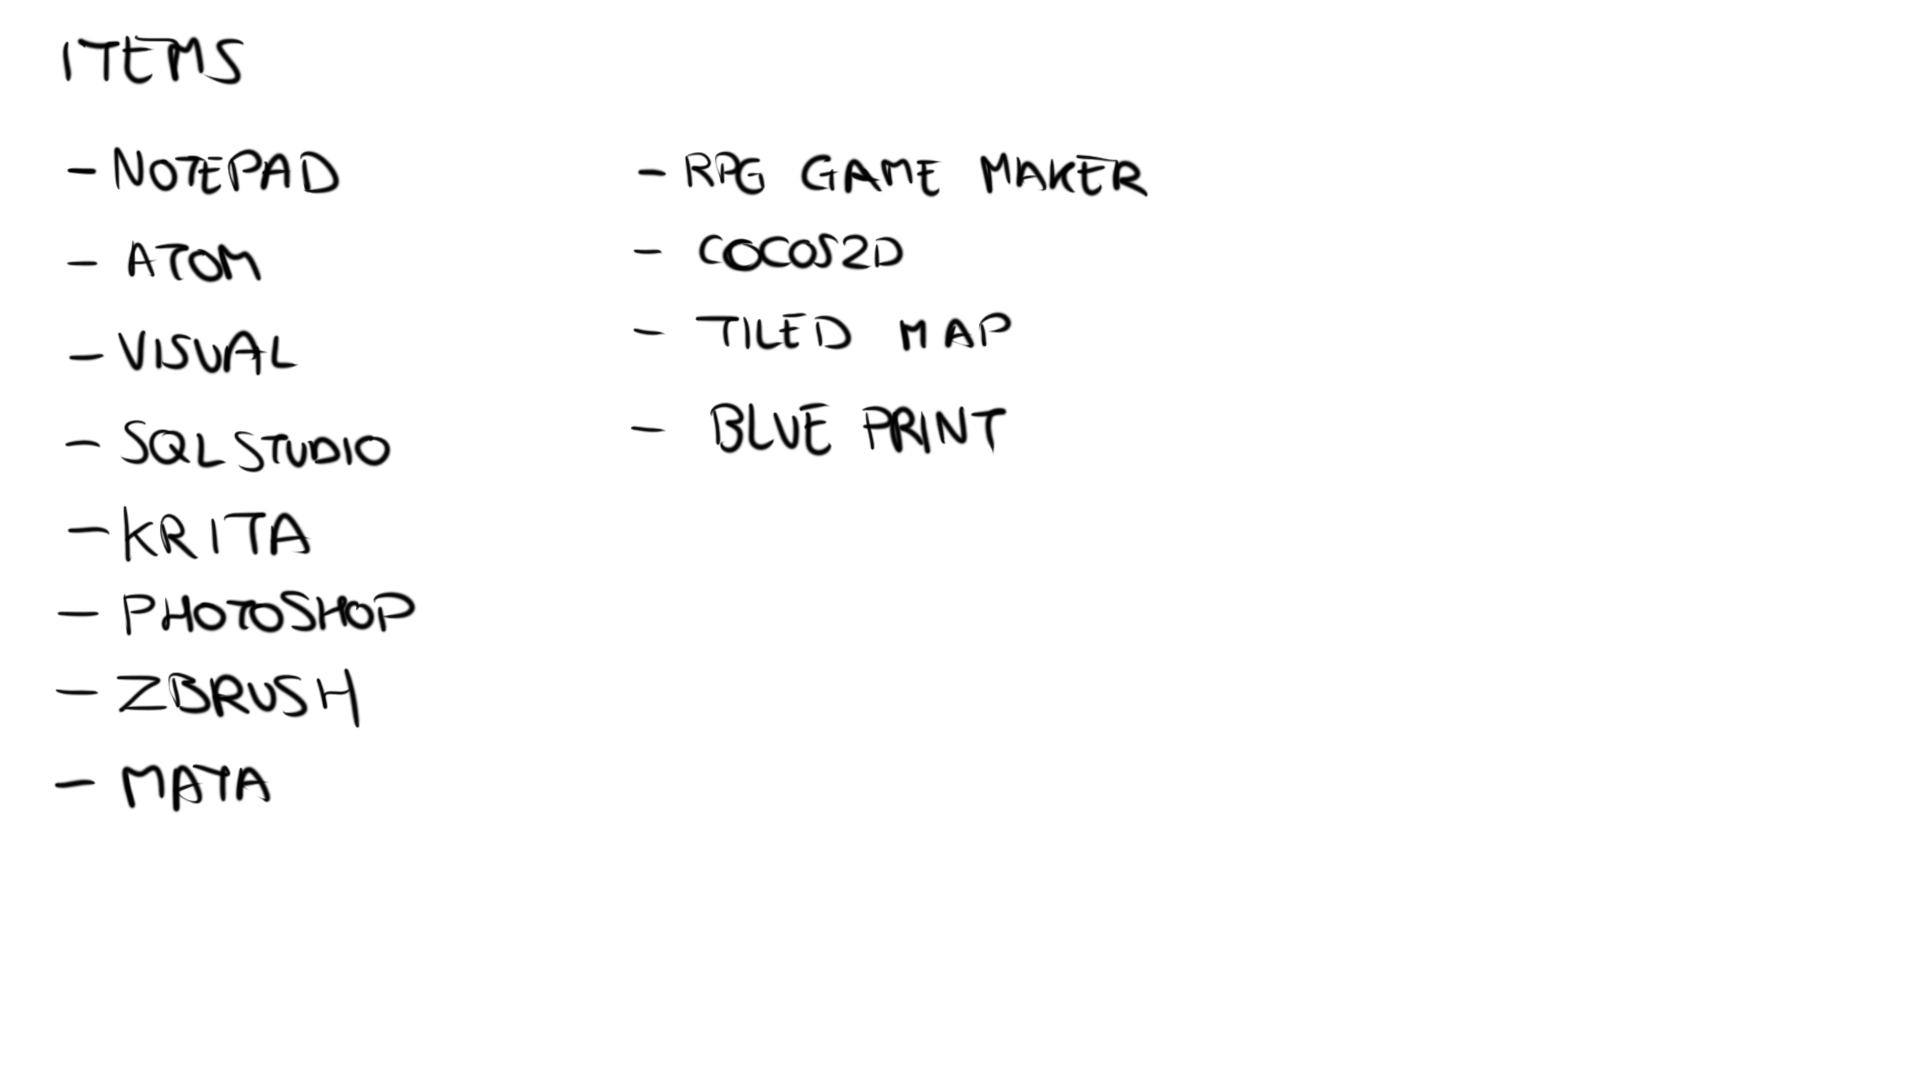 ITEMS
- NOTEPAD
- ATOM
- VISUAL
- SQL STUDIO
- KRITA
- PHOTOSHOP
- ZBRUSH
- MAYA
- RPG GAME MAKER
- COCOS2D
- TILED MAP
- BLUE PRINT